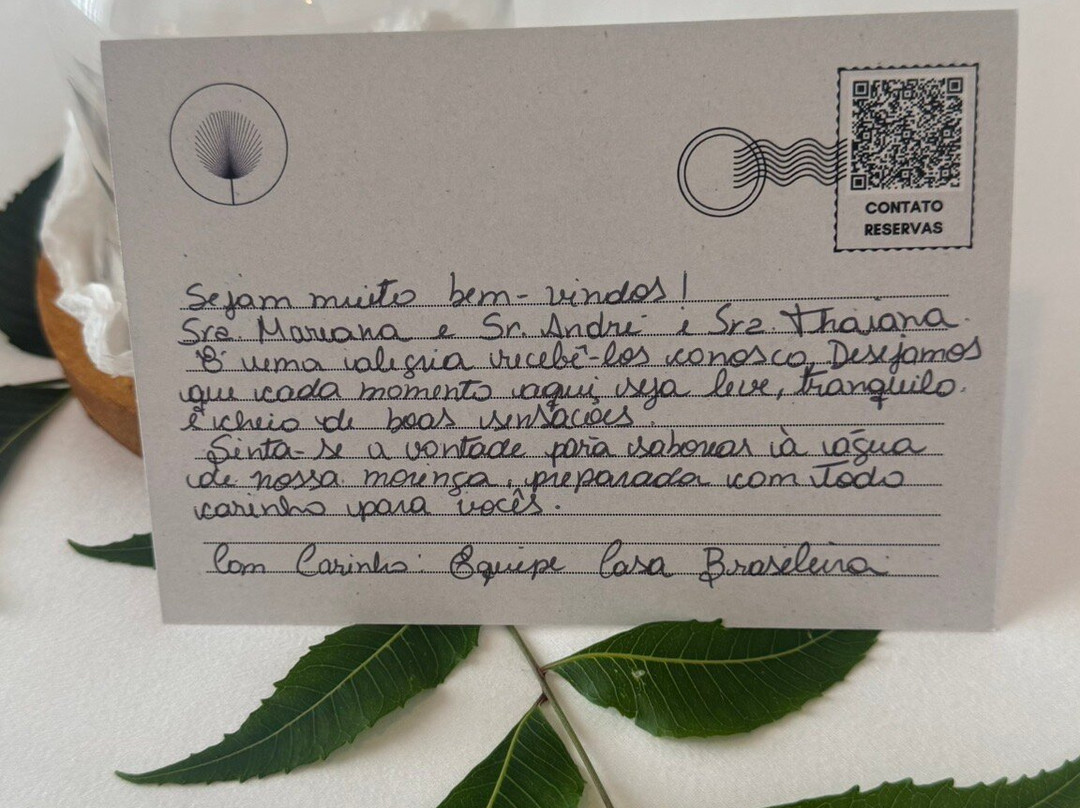 CONTATO
RESERVAS
Sejam muito bem-vindos!
Sra. Mariana e Sr. André e Sra. Thaiana.
É uma alegria recebê-los conosco. Desejamos
que cada momento aqui seja leve, tranquilo.
e cheio de boas sensações.
Sinta-se a vontade para saborear à água
de nossa moringa, preparada com Todo
carinho para vocês.
Com Carinho: Equipe Casa Brasileira